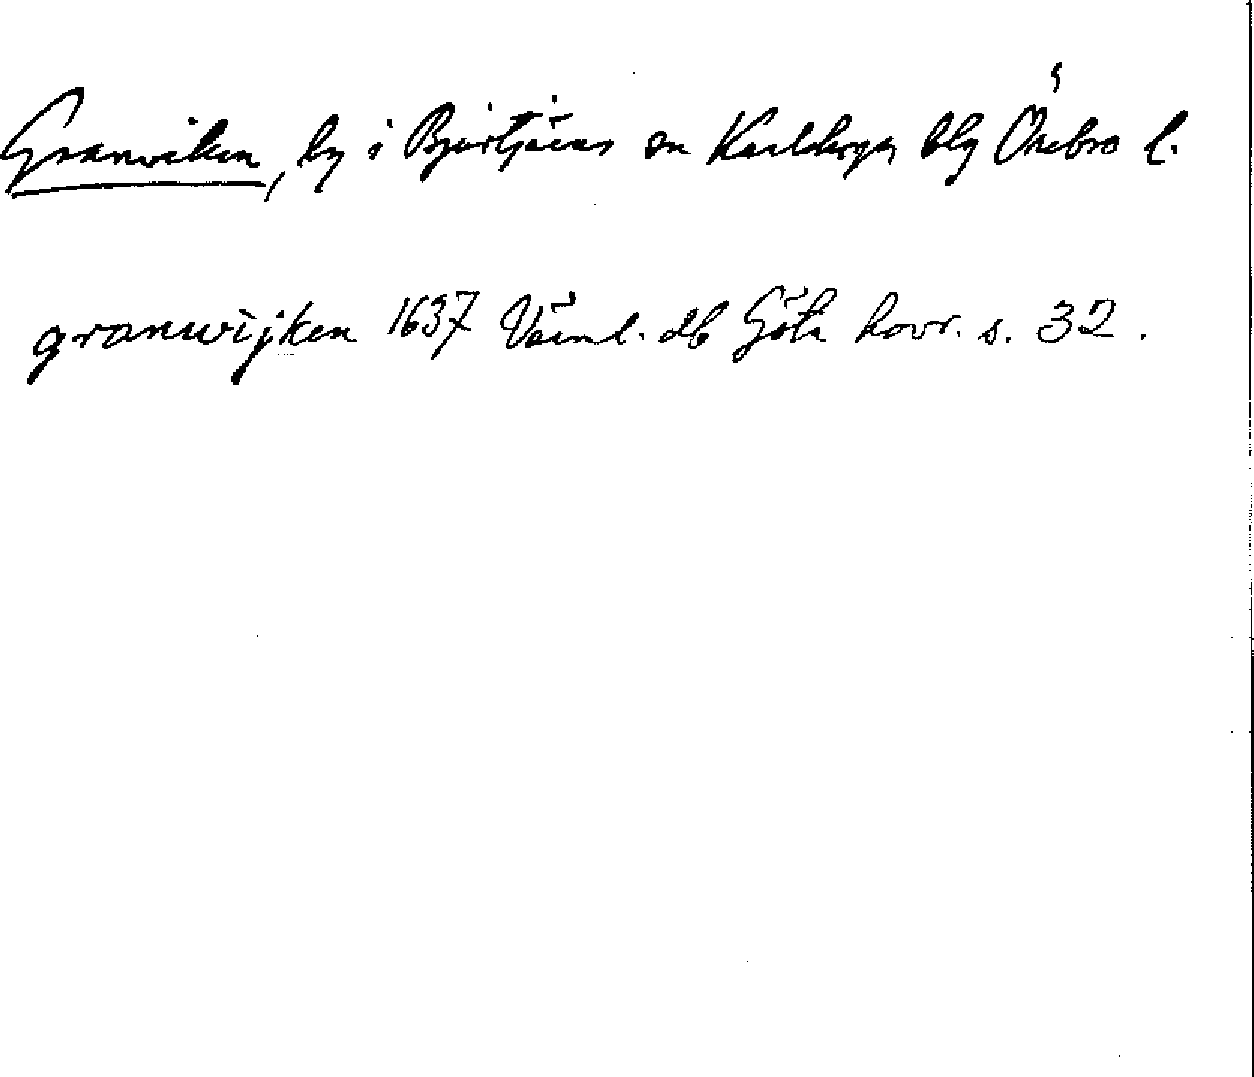 Granviken, by i Bjurtjärns sn Karlskoga blg Örebro l.
granwijken 1637 Värml. db Göta hovr. s. 32.